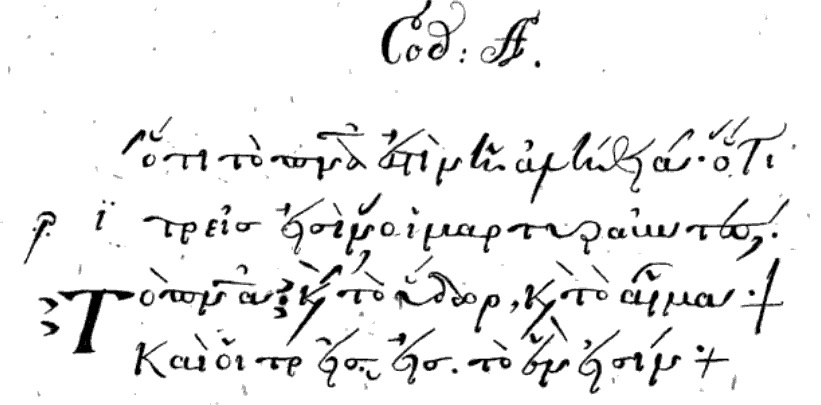 Cod: A.
ὅτι τὸ πνᾶ ἐστὶν ἡ ἀλήθεια· ὅτι
τρεῖσ εἰσὶν οἱ μαρτυροῦντες·
Τὸ πνᾶ· κ τὸ ὕδωρ, κ τὸ αἷμα·+
Καὶ οἱ τρεῖσ εἰσ τὸ ἓν εἰσίν·+